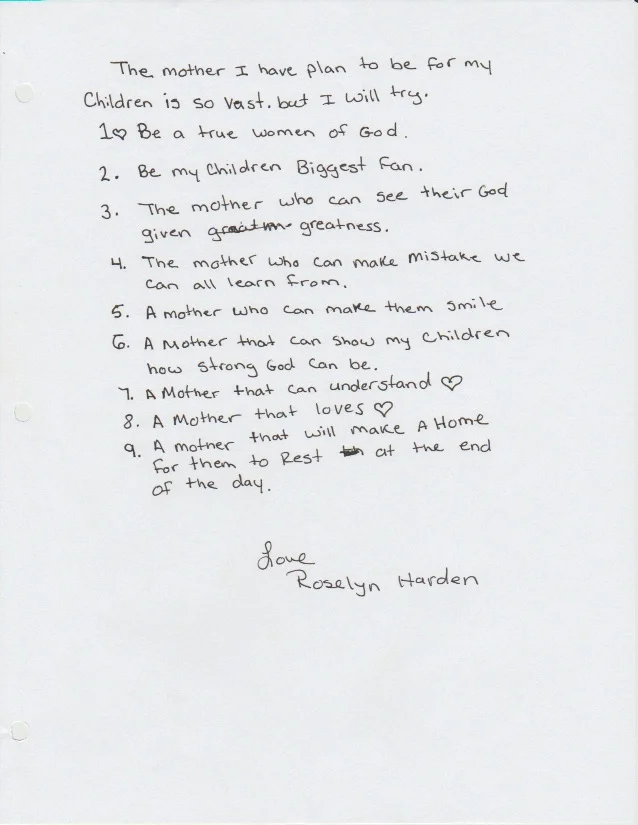 The mother I have plan to be for my
Children is so vast. but I will try.
1♡ Be a true women of God.
2. Be my Children Biggest Fan.
3. The mother who can see their God
given greatness.
4. The mother who can make mistake we
can all learn from.
5. A mother who can make them smile
6. A Mother that can show my children
how strong God can be.
7. A Mother that can understand ♡
8. A Mother that loves ♡
9. A mother that will make A Home
for them to Rest at the end
of the day.
Love
Roselyn Harden